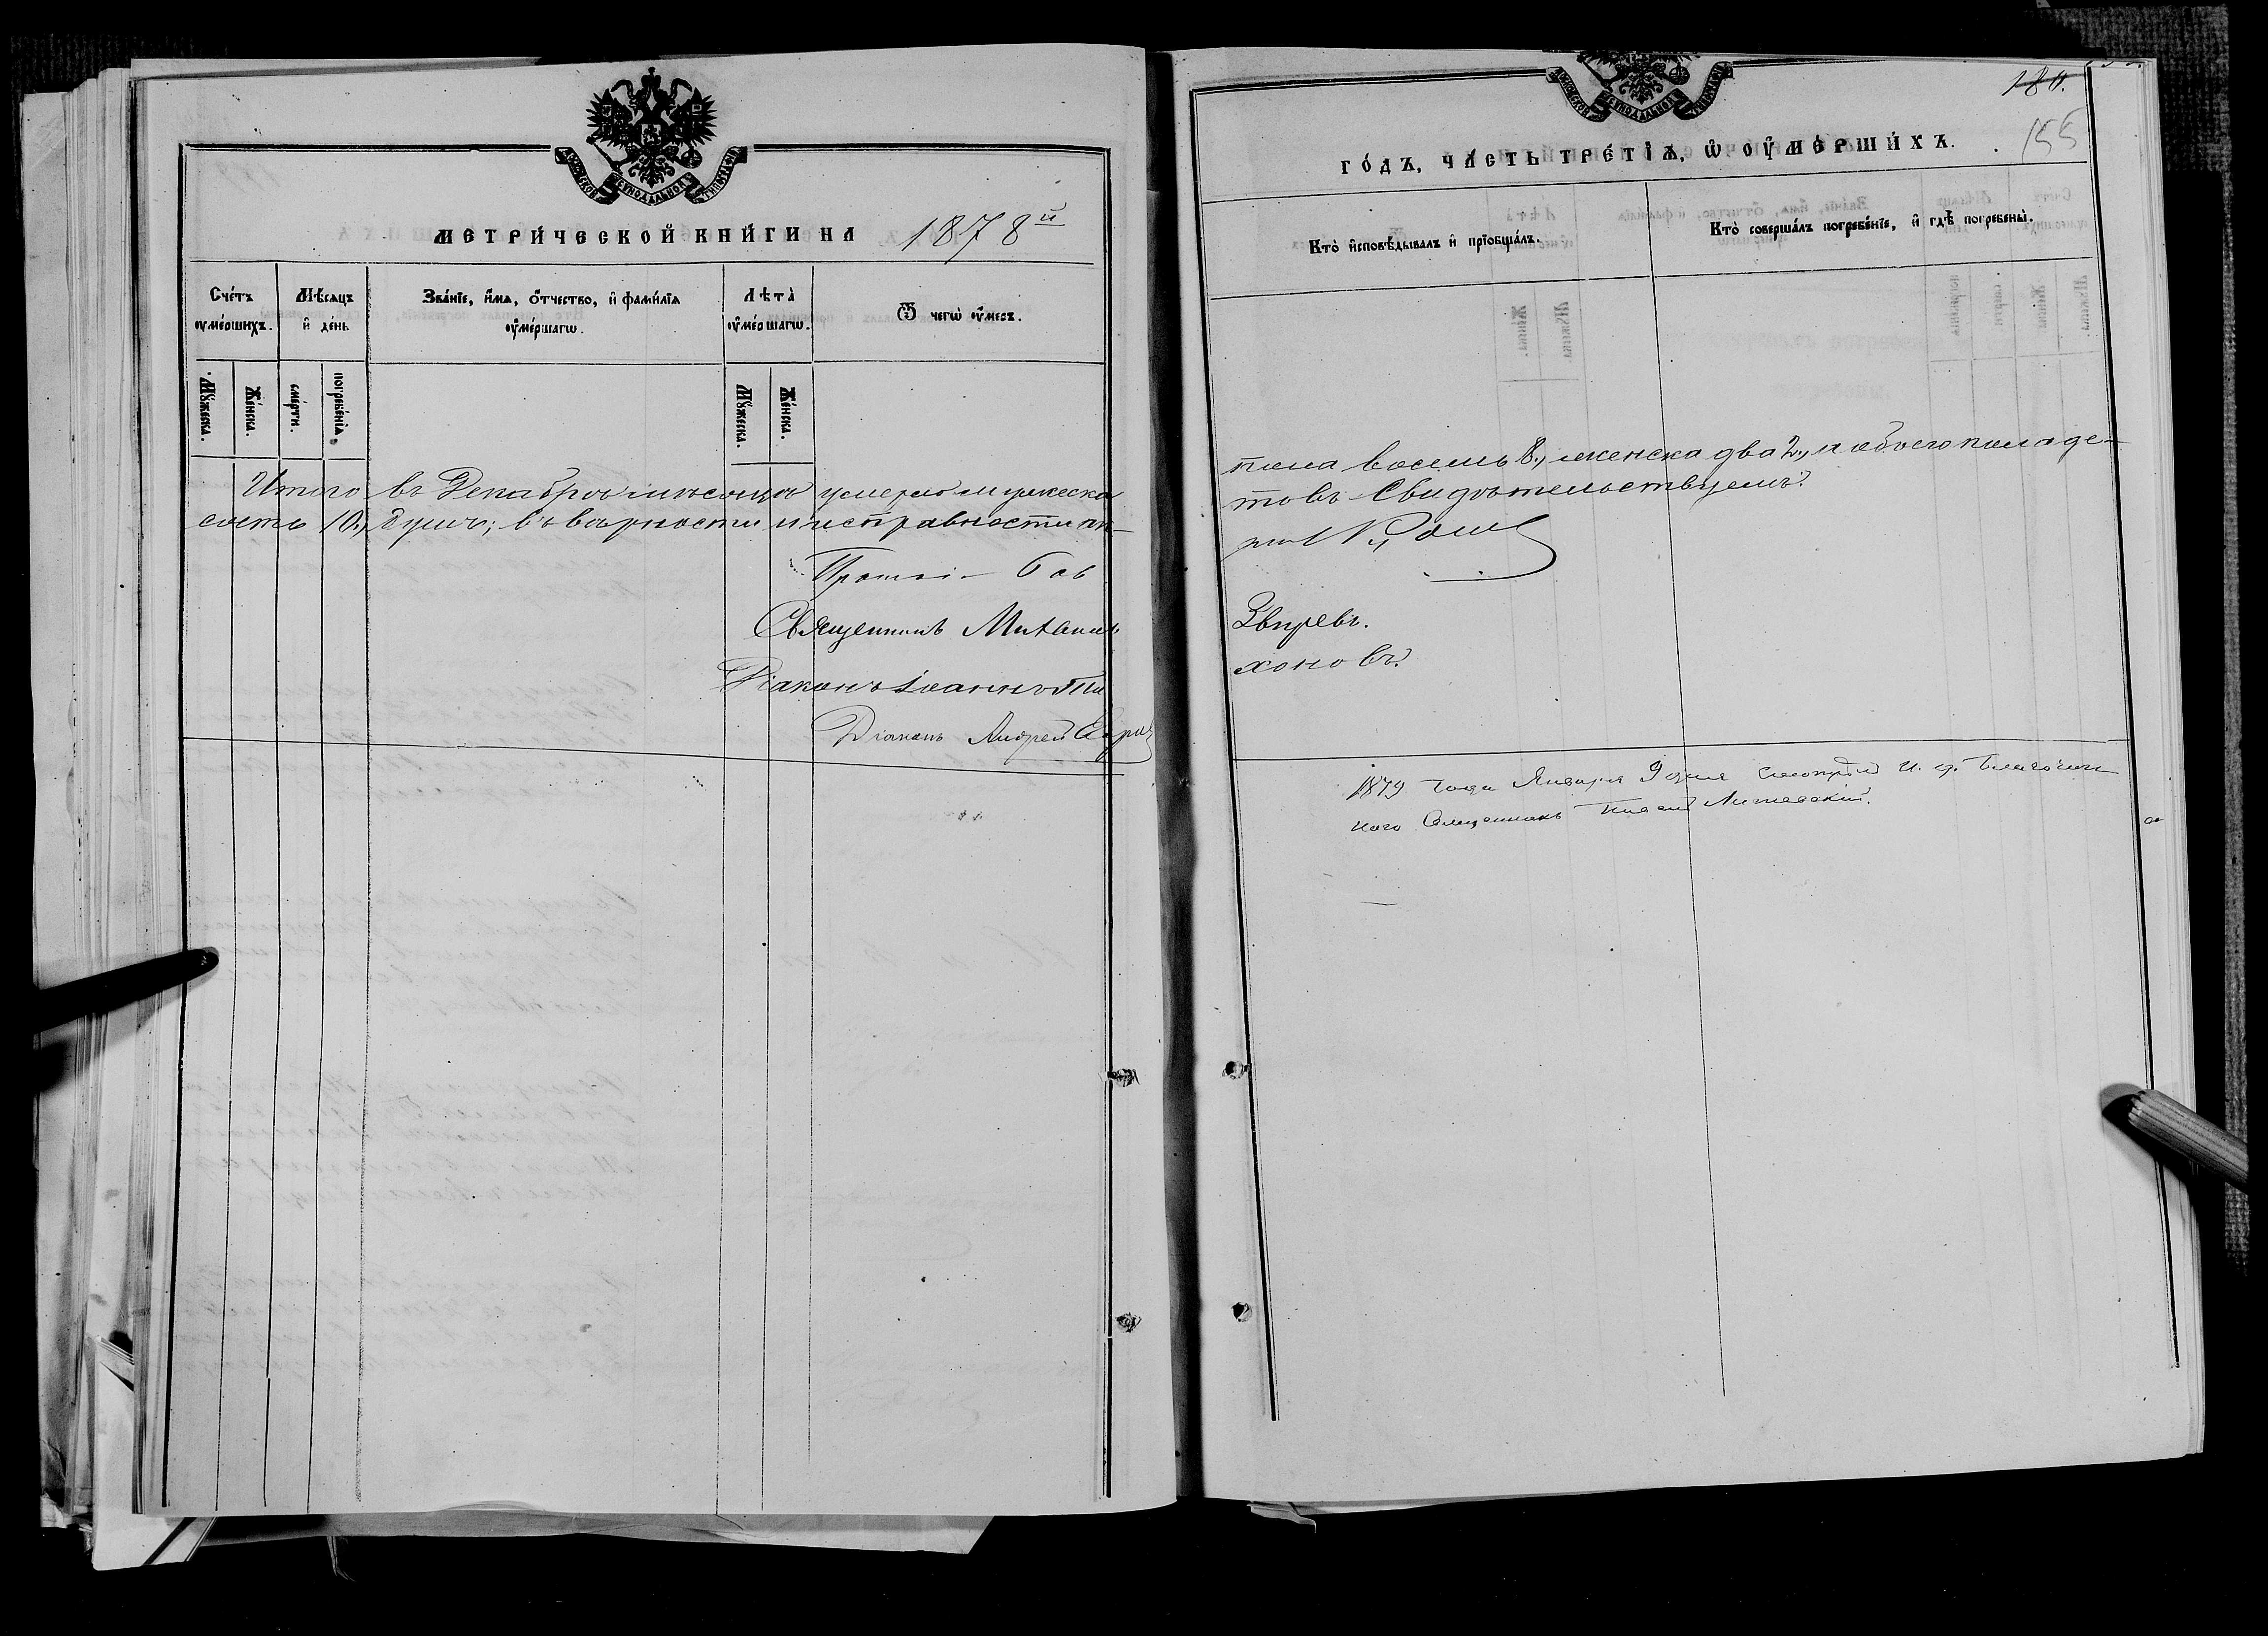 МЕТРИ́ЧЕСКОЙ КНИ́ГИ НА 1878й
Сче́тъ ᲂу҆ме́ршихъ.
Мѣ́сяцъ и҆ де́нь
Зва́нїе, и҆́мя, ѻ҆́тчество, и҆ фами́лїя ᲂу҆ме́ршагѡ.
Лѣта̀ ᲂу҆ме́ршагѡ.
Ѿ чегѡ̀ ᲂу҆́меръ.
Мꙋ́жеска.
Же́нска.
сме́рти.
погребе́нїѧ.
Мꙋ́жеска.
Же́нска.
Итого въ Декабрѣ мѣсяцѣ умерло мужеска
сять 10., душъ; въ вѣрности и исправности ак-
Священникъ Михаилъ
Діаконъ Іоаннъ Ти
Діаконъ Андрей
180.
155
ГО́ДЪ, ЧА́СТЬ ТРЕ́ТЇѦ, Ѡ҆ ОУ҆МЕ́РШИХЪ.
Кто̀ и҆сповѣ́дывалъ и҆ прїѡбща́лъ.
Кто̀ соверша́лъ погребе́нїе, и҆ гдѣ̀ погребены̀.
пола восемь 8., женска два 2., и обоего пола де-
товъ Свидѣтельствуемъ:
Звѣревъ.
хоновъ.
1879 года Января 9 дня смотрѣлъ И. д. Благочин-
наго Священникъ